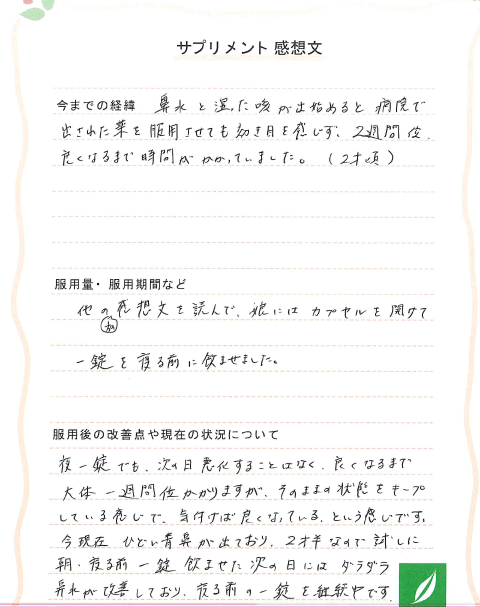 サプリメント 感想文
今までの経緯 鼻水と湿った咳が出始めると病院で
出された薬を服用させても効き目を感じず、2週間位、
良くなるまで時間がかかっていました。(2才頃)
服用量・服用期間など
他の感想文を読んで、娘にはカプセルを開けて
一錠を寝る前に飲ませました。
服用後の改善点や現在の状況について
夜一錠でも、次の日悪化することはなく、良くなるまで
大体一週間位かかりますが、そのままの状態をキープ
している感じで、気付けば良くなっている、という感じです。
今現在 ひどい青鼻が出ており、2才半なので試しに
朝・寝る前一錠 飲ませた次の日には ダラダラ
鼻水が改善しており、寝る前の一錠を継続中です。